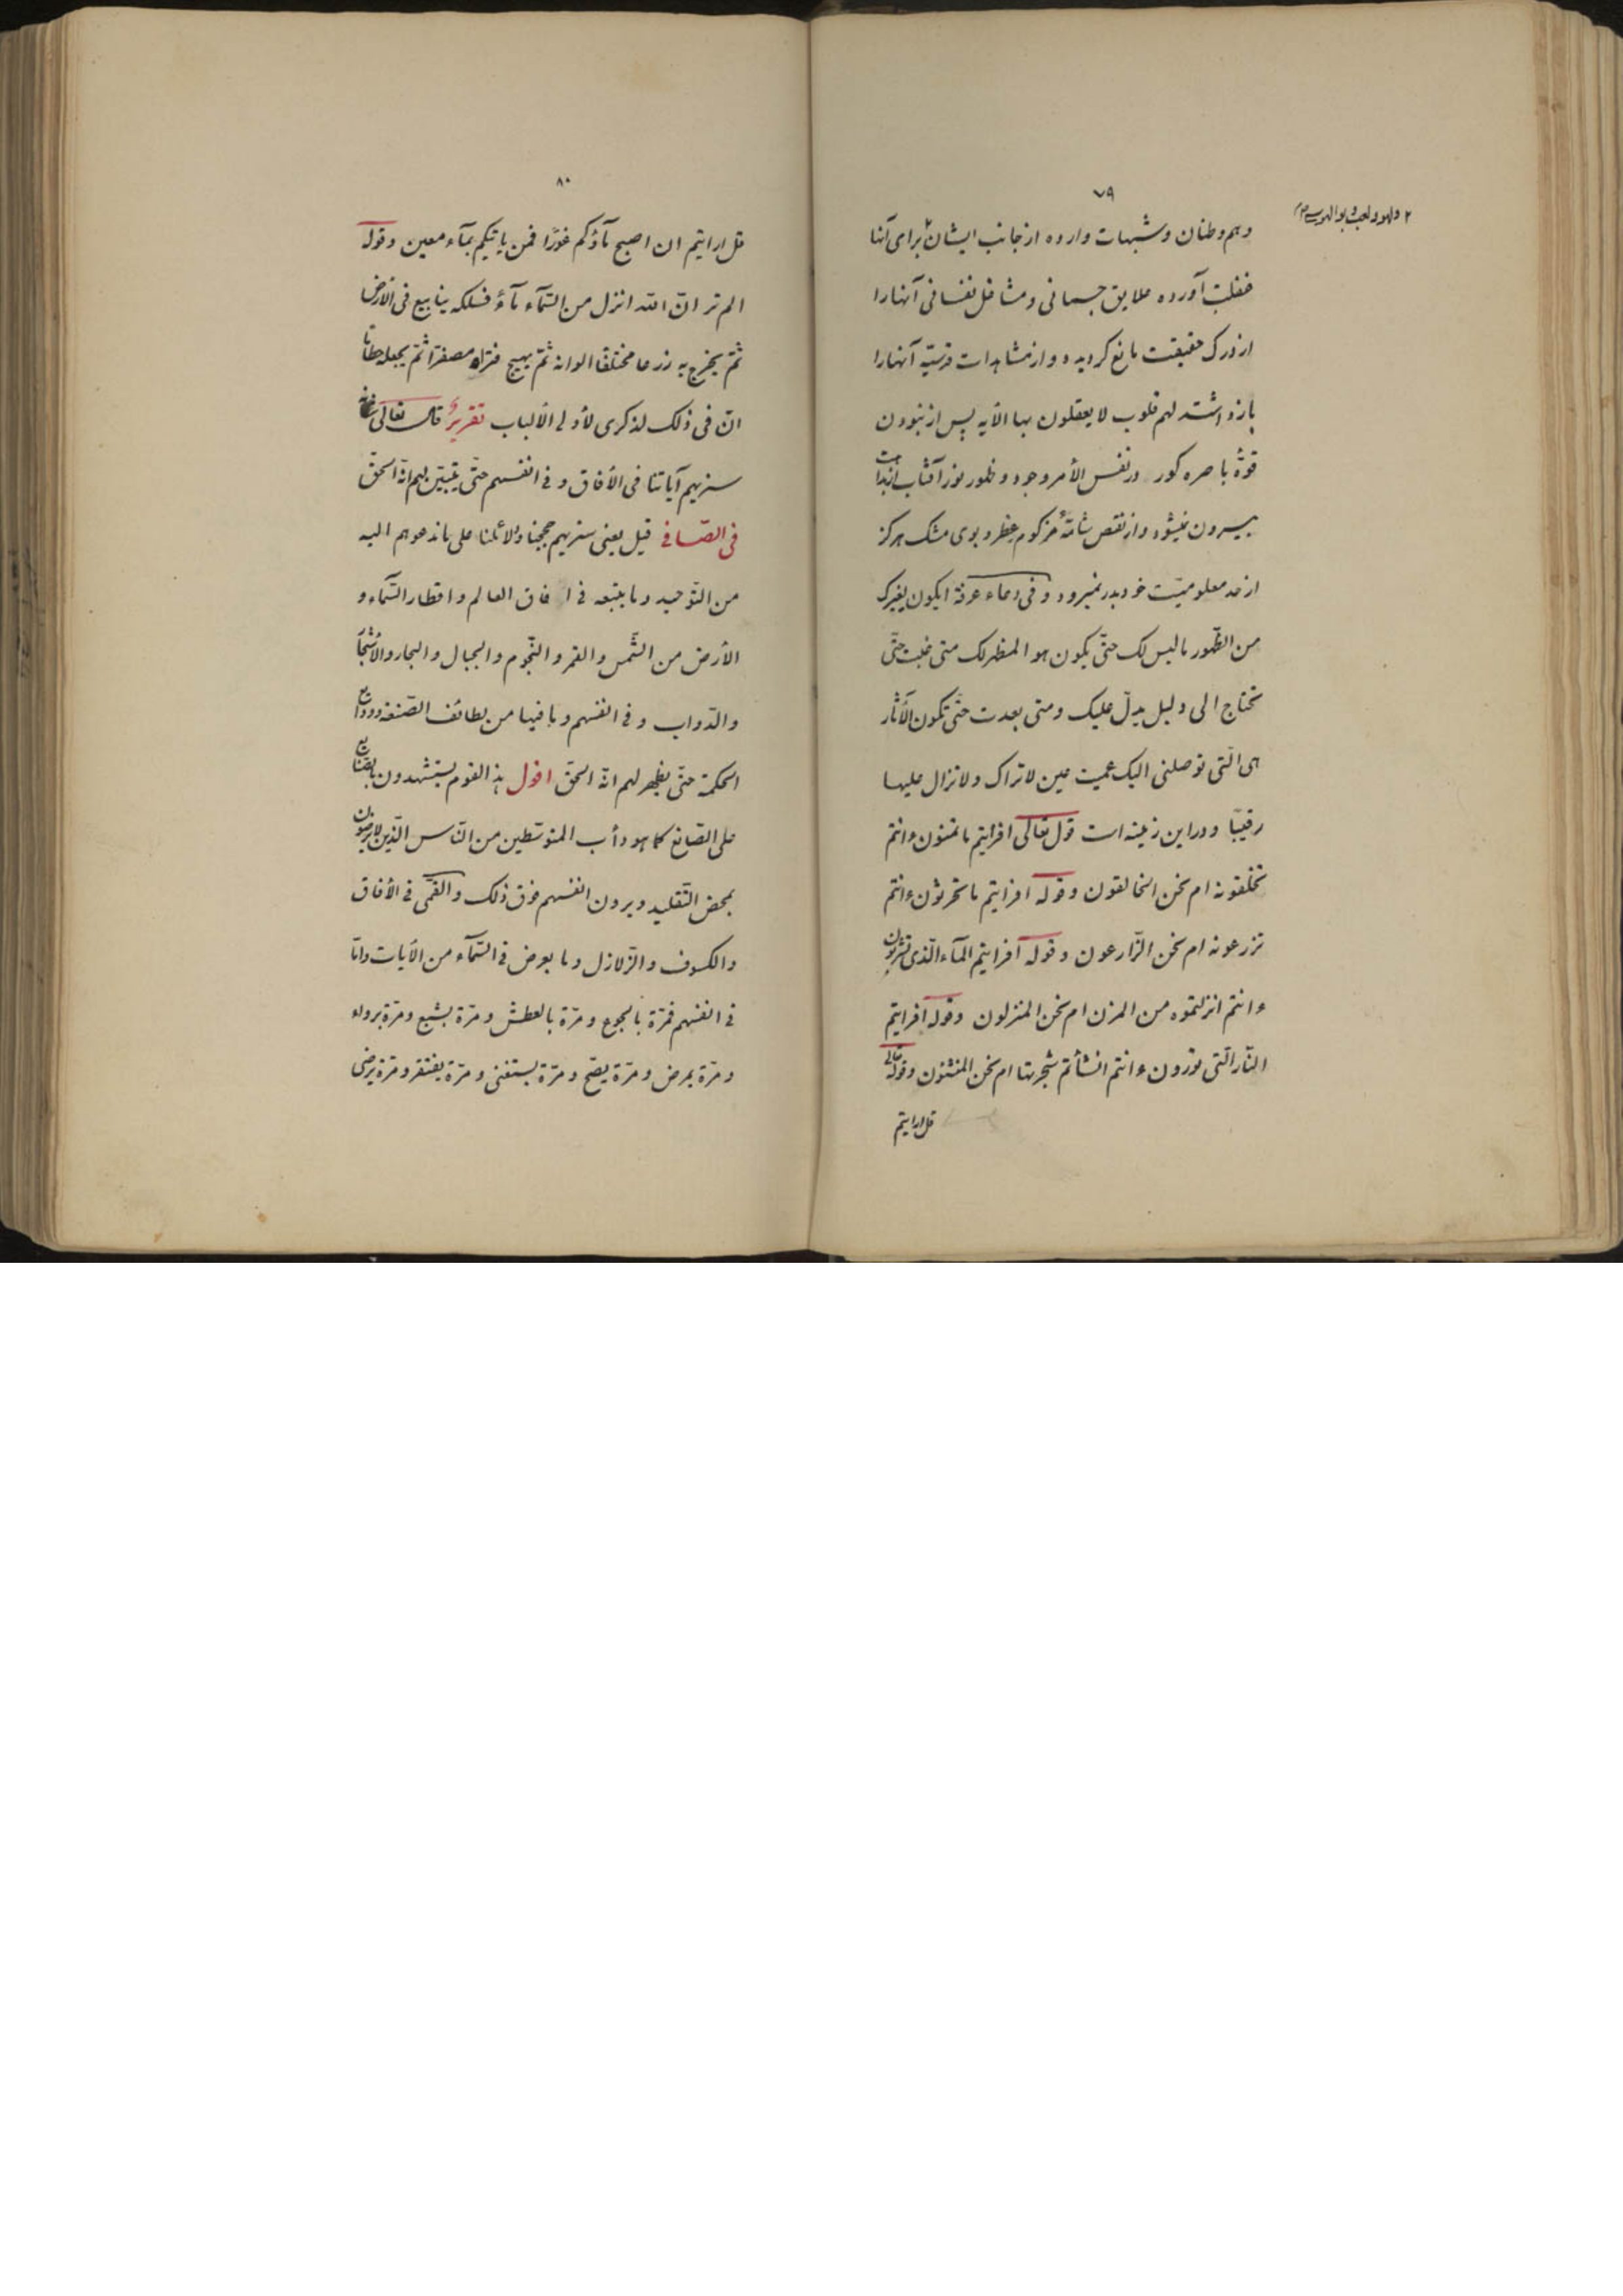 ۷۹
۲ ولهو ولعب و بوالهوسی
وهم وظنان وشبهات وارده از جانب ایشان ۲ برای آنها
غفلت آورده علایق جسمانی ومشاغل نفسانی آنهارا
از درک حقیقت مانع کردیده واز مشاهدات قدسیّه آنهارا
بازداشته لهم قلوب لا یعقلون بها الآیه پس از نبودن
قوّهٔ باصره کور در نفس الأمر وجود وظهور نور آفتاب از بداهت
بیرون نمیشود واز نقص شامّهٔ مزکوم عطر وبوی مشک هرکز
از حد معلومیّت خود بدر نمیرود وفی دعاء عرفة ایکون لغیرک
من الظّهور ما لیس لک حتّی یکون هو المظهر لک متی غبت حتّی
تحتاج الی دلیل یدلّ علیک ومتی بعدت حتّی تکون الآثار
هی الّتی توصلنی الیک عمیت عین لا تراک ولا تزال علیها
رقیبًا ودر این زمینه است قوله تعالی افرایتم ما تمنون ءانتم
تخلقونه ام نحن الخالقون وقوله افرایتم ما تحرثون ءانتم
تزرعونه ام نحن الزّارعون وقوله افرایتم المآء الّذی تشربون
ءانتم انزلتموه من المزن ام نحن المنزلون وقوله افرایتم
النّار الّتی تورون ءانتم انشأتم شجرتها ام نحن المنشئون وقوله تعالی
قل ارایتم
۸۰
قل ارایتم ان اصبح مآؤکم غورًا فمن یاتیکم بمآء معین وقوله
الم تر انّ الله انزل من السّمآء مآءً فسلکه ینابیع فی الأرض
ثمّ یخرج به زرعا مختلفًا الوانه ثمّ یهیج فتراه مصفرًّا ثمّ یجعله حطامًا
انّ فی ذلک لذکری لأولی الألباب تقریرٌ قال تعالی شانه
سنریهم آیاتنا فی الأفاق وفی انفسهم حتّی یتبیّن لهم انّه الحقّ
فی الصّافی قیل یعنی سنریهم حججنا ودلائلنا علی ما ندعوهم الیه
من التّوحید وما یتبعه فی افاق العالم واقطار السّمآء و
الأرض من الشّمس والقمر والنّجوم والجبال والبحار والأشجار
والدّواب وفی انفسهم وما فیها من لطائف الصّنعة وودایع
الحکمة حتّی یظهر لهم انّه الحقّ اقول هذا القوم یستشهدون بالصّنایع
علی الصّانع کما هو دأب المتوسّطین من النّاس الّذین لا یرضون
بمحض التّقلید ویرون انفسهم فوق ذلک والقمّی فی الأفاق
والکسوف والزّلازل وما یعرض فی السّمآء من الأیات وامّا
فی انفسهم فمرّة بالجوع ومرّة بالعطش ومرّة یشبع ومرّة یروی
ومرّة یمرض ومرّة یصحّ ومرّة یستغنی ومرّة یفتقر ومرّة یرضی